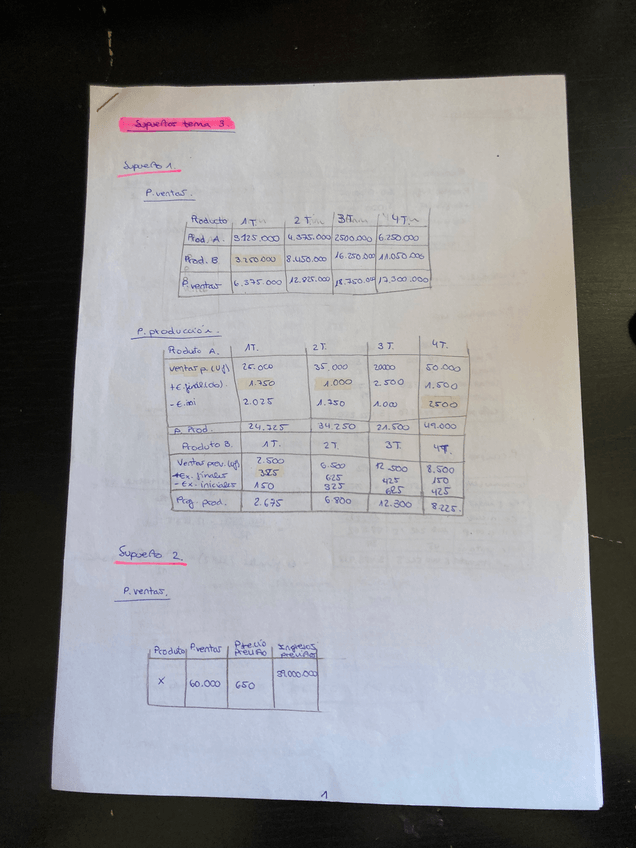 Supuestos tema 3.
Supuesto 1.
P. ventas.
Producto 1T. 2T. 3T. 4T.
Prod. A. 3125.000 4.375.000 2500.000 6.250.000
Prod. B 3.250.000 8.450.000 16.250.000 11.050.000
P. ventas 6.375.000 12.825.000 18.750.000 17.300.000
P. producción.
Produto A. 1T. 2T. 3T. 4T.
Ventas p. (uf) 25.000 35.000 20000 50.000
+E. final. 1.750 1.000 2.500 1.500
- E. ini 2.025 1.750 1.000 2500
P. Prod. 24.725 34.250 21.500 49.000
Produto B. 1T. 2T. 3T. 4T.
Ventas prev. (uf) 2.500 6.500 12.500 8.500
+Ex. finales 325 625 425 150
- Ex. iniciales 150 325 625 425
Prog. prod. 2.675 6.800 12.300 8.225.
Supuesto 2.
P. ventas.
Produto P.ventas Precio previsto Ingresos previstos
X 60.000 650 39.000.000
1